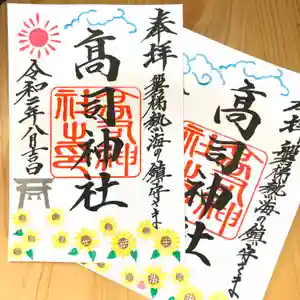 奉拝
磐梯熱海の鎮守さま
高司神社
令和二年八月吉日
高司神社之印
磐梯熱海の鎮守さま
高司神社